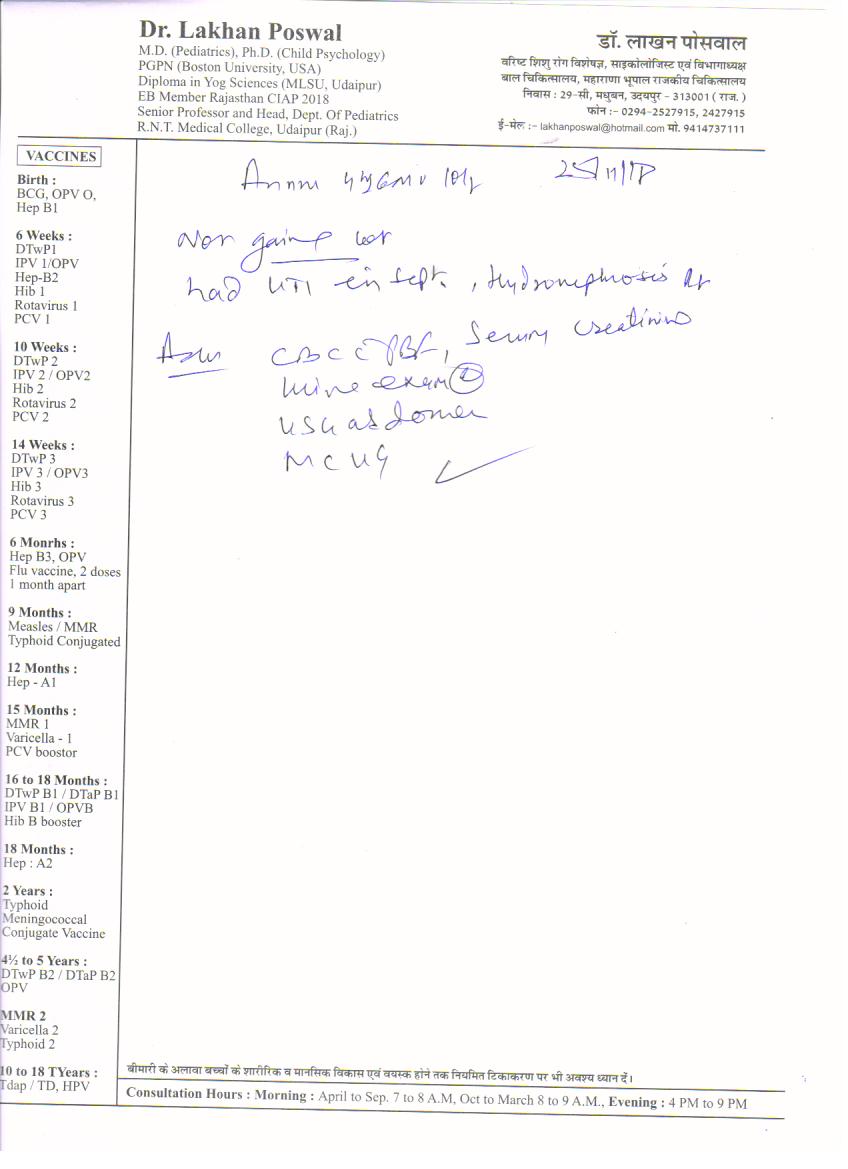 Dr. Lakhan Poswal
M.D. (Pediatrics), Ph.D. (Child Psychology)
PGPN (Boston University, USA)
Diploma in Yog Sciences (MLSU, Udaipur)
EB Member Rajasthan CIAP 2018
Senior Professor and Head, Dept. Of Pediatrics
R.N.T. Medical College, Udaipur (Raj.)
डॉ. लाखन पोसवाल
वरिष्ट शिशु रोग विशेषज्ञ, साइकोलोजिस्ट एवं विभागाध्यक्ष
बाल चिकित्सालय, महाराणा भूपाल राजकीय चिकित्सालय
निवास : 29-सी, मधुबन, उदयपुर - 313001 ( राज. )
फोन :- 0294-2527915, 2427915
ई-मेल :- lakhanposwal@hotmail.com मो. 9414737111
VACCINES
Birth :
BCG, OPV O,
Hep B1
6 Weeks :
DTwP1
IPV 1/OPV
Hep-B2
Hib 1
Rotavirus 1
PCV 1
10 Weeks :
DTwP 2
IPV 2 / OPV2
Hib 2
Rotavirus 2
PCV 2
14 Weeks :
DTwP 3
IPV 3 / OPV3
Hib 3
Rotavirus 3
PCV 3
6 Monrhs :
Hep B3, OPV
Flu vaccine, 2 doses
1 month apart
9 Months :
Measles / MMR
Typhoid Conjugated
12 Months :
Hep - A1
15 Months :
MMR 1
Varicella - 1
PCV boostor
16 to 18 Months :
DTwP B1 / DTaP B1
IPV B1 / OPVB
Hib B booster
18 Months :
Hep : A2
2 Years :
Typhoid
Meningococcal
Conjugate Vaccine
4½ to 5 Years :
DTwP B2 / DTaP B2
OPV
MMR 2
Varicella 2
Typhoid 2
10 to 18 TYears :
Tdap / TD, HPV
Not gaining wt
had UTI in Sept. , Hydronephosis Rt
CBC c PBF, Serum Creatinine
Urine exam
USG abdomen
MCUG
बीमारी के अलावा बच्चों के शारीरिक व मानसिक विकास एवं वयस्क होने तक नियमित टिकाकरण पर भी अवश्य ध्यान दें।
Consultation Hours : Morning : April to Sep. 7 to 8 A.M, Oct to March 8 to 9 A.M., Evening : 4 PM to 9 PM